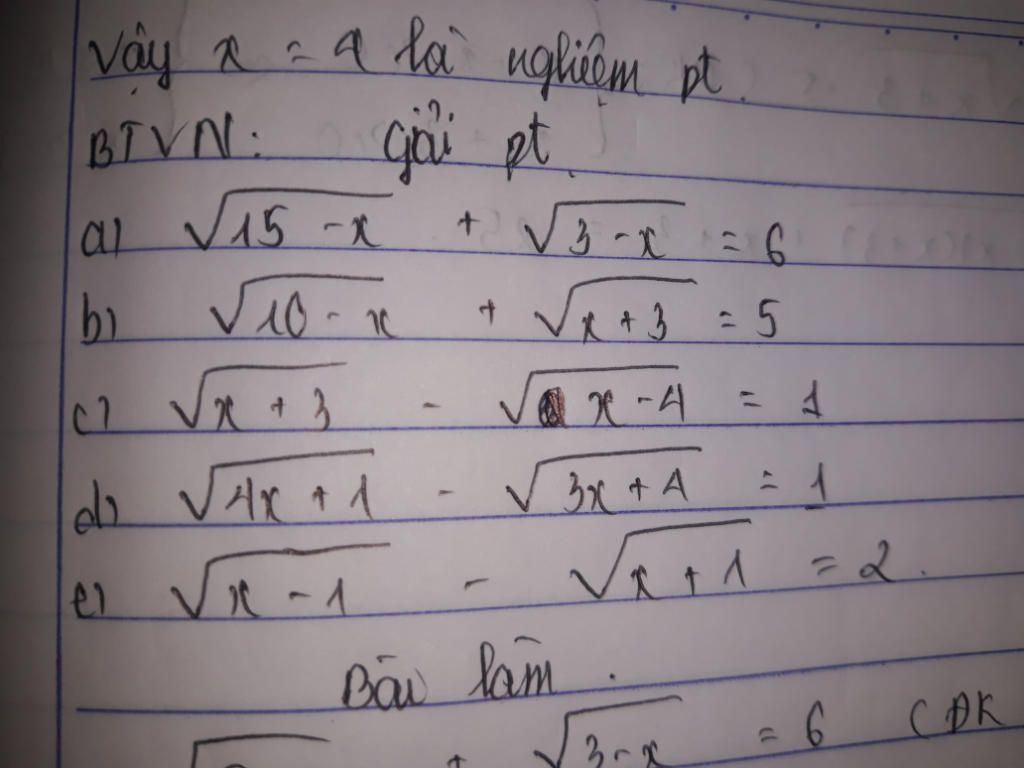 Vậy x = 4 là nghiệm pt.
BTVN: Giải pt
a) √15 - x + √3 - x = 6
b) √10 - x + √x + 3 = 5
c) √x + 3 - √x - 4 = 1
d) √4x + 1 - √3x + 4 = 1
e) √x - 1 - √x + 1 = 2.
Bài làm.
+ √3 - x = 6 (ĐK